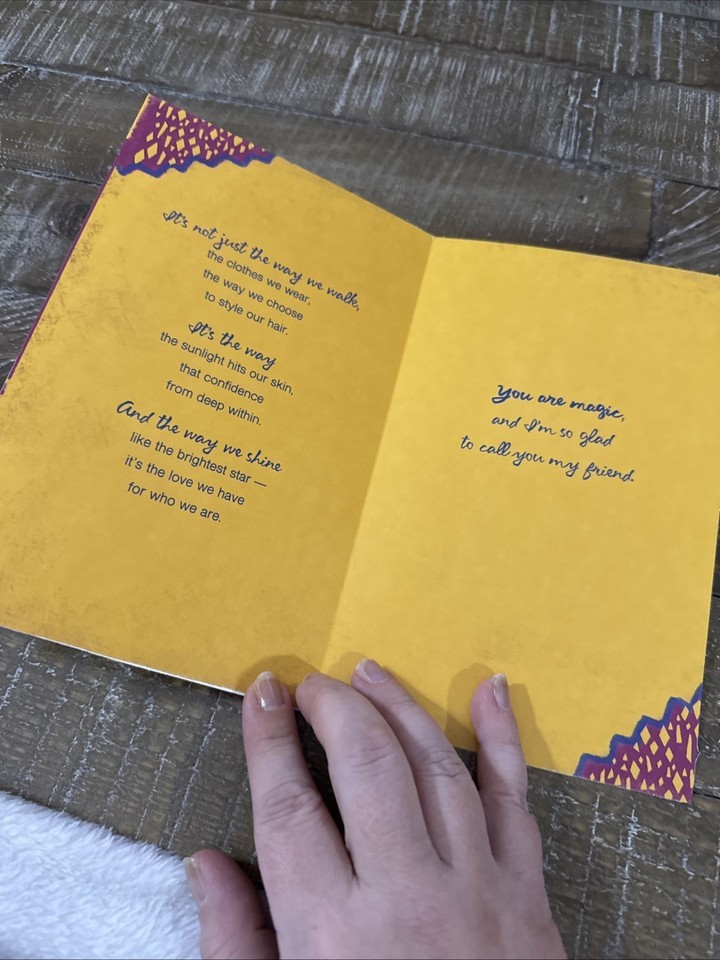 It's not just the way we walk,
the clothes we wear,
the way we choose
to style our hair.
It's the way
the sunlight hits our skin,
that confidence
from deep within.
And the way we shine
like the brightest star —
it's the love we have
for who we are.
You are magic,
and I'm so glad
to call you my friend.